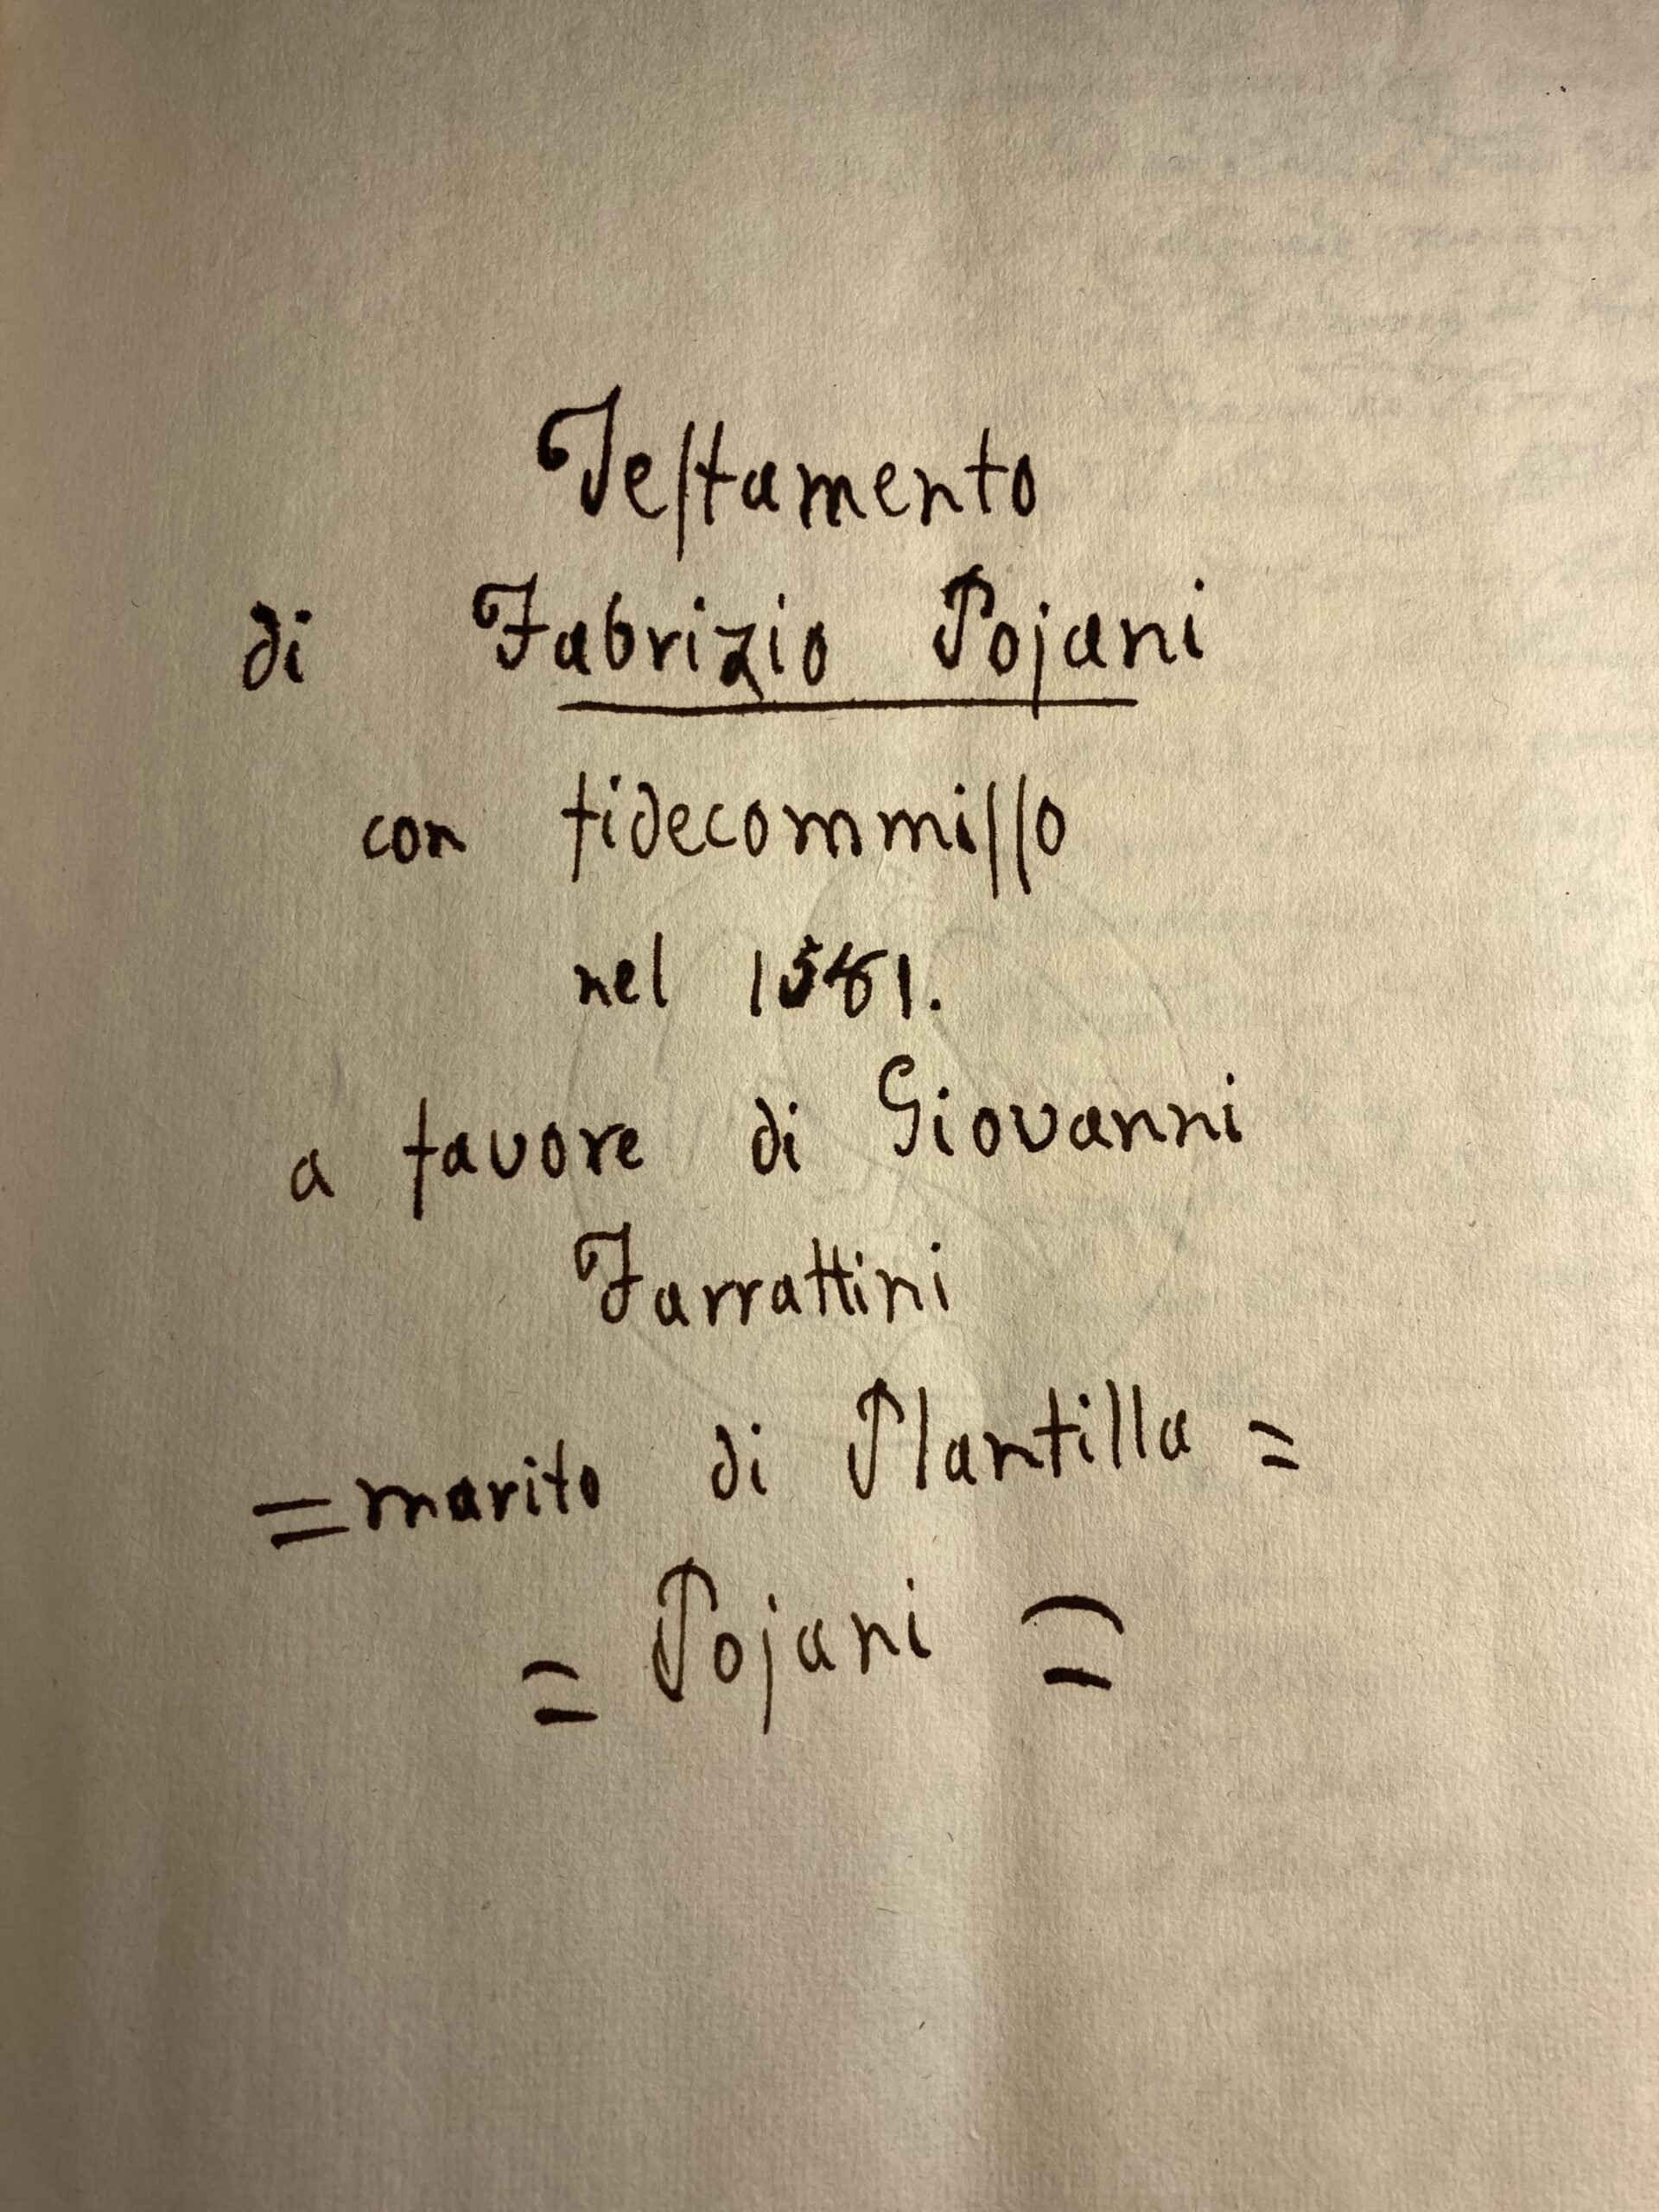 Teſtamento
di Fabrizio Pojani
con fidecommiſſo
nel 1581.
a favore di Giovanni
Farrattini
=marito di Plantilla=
= Pojani =